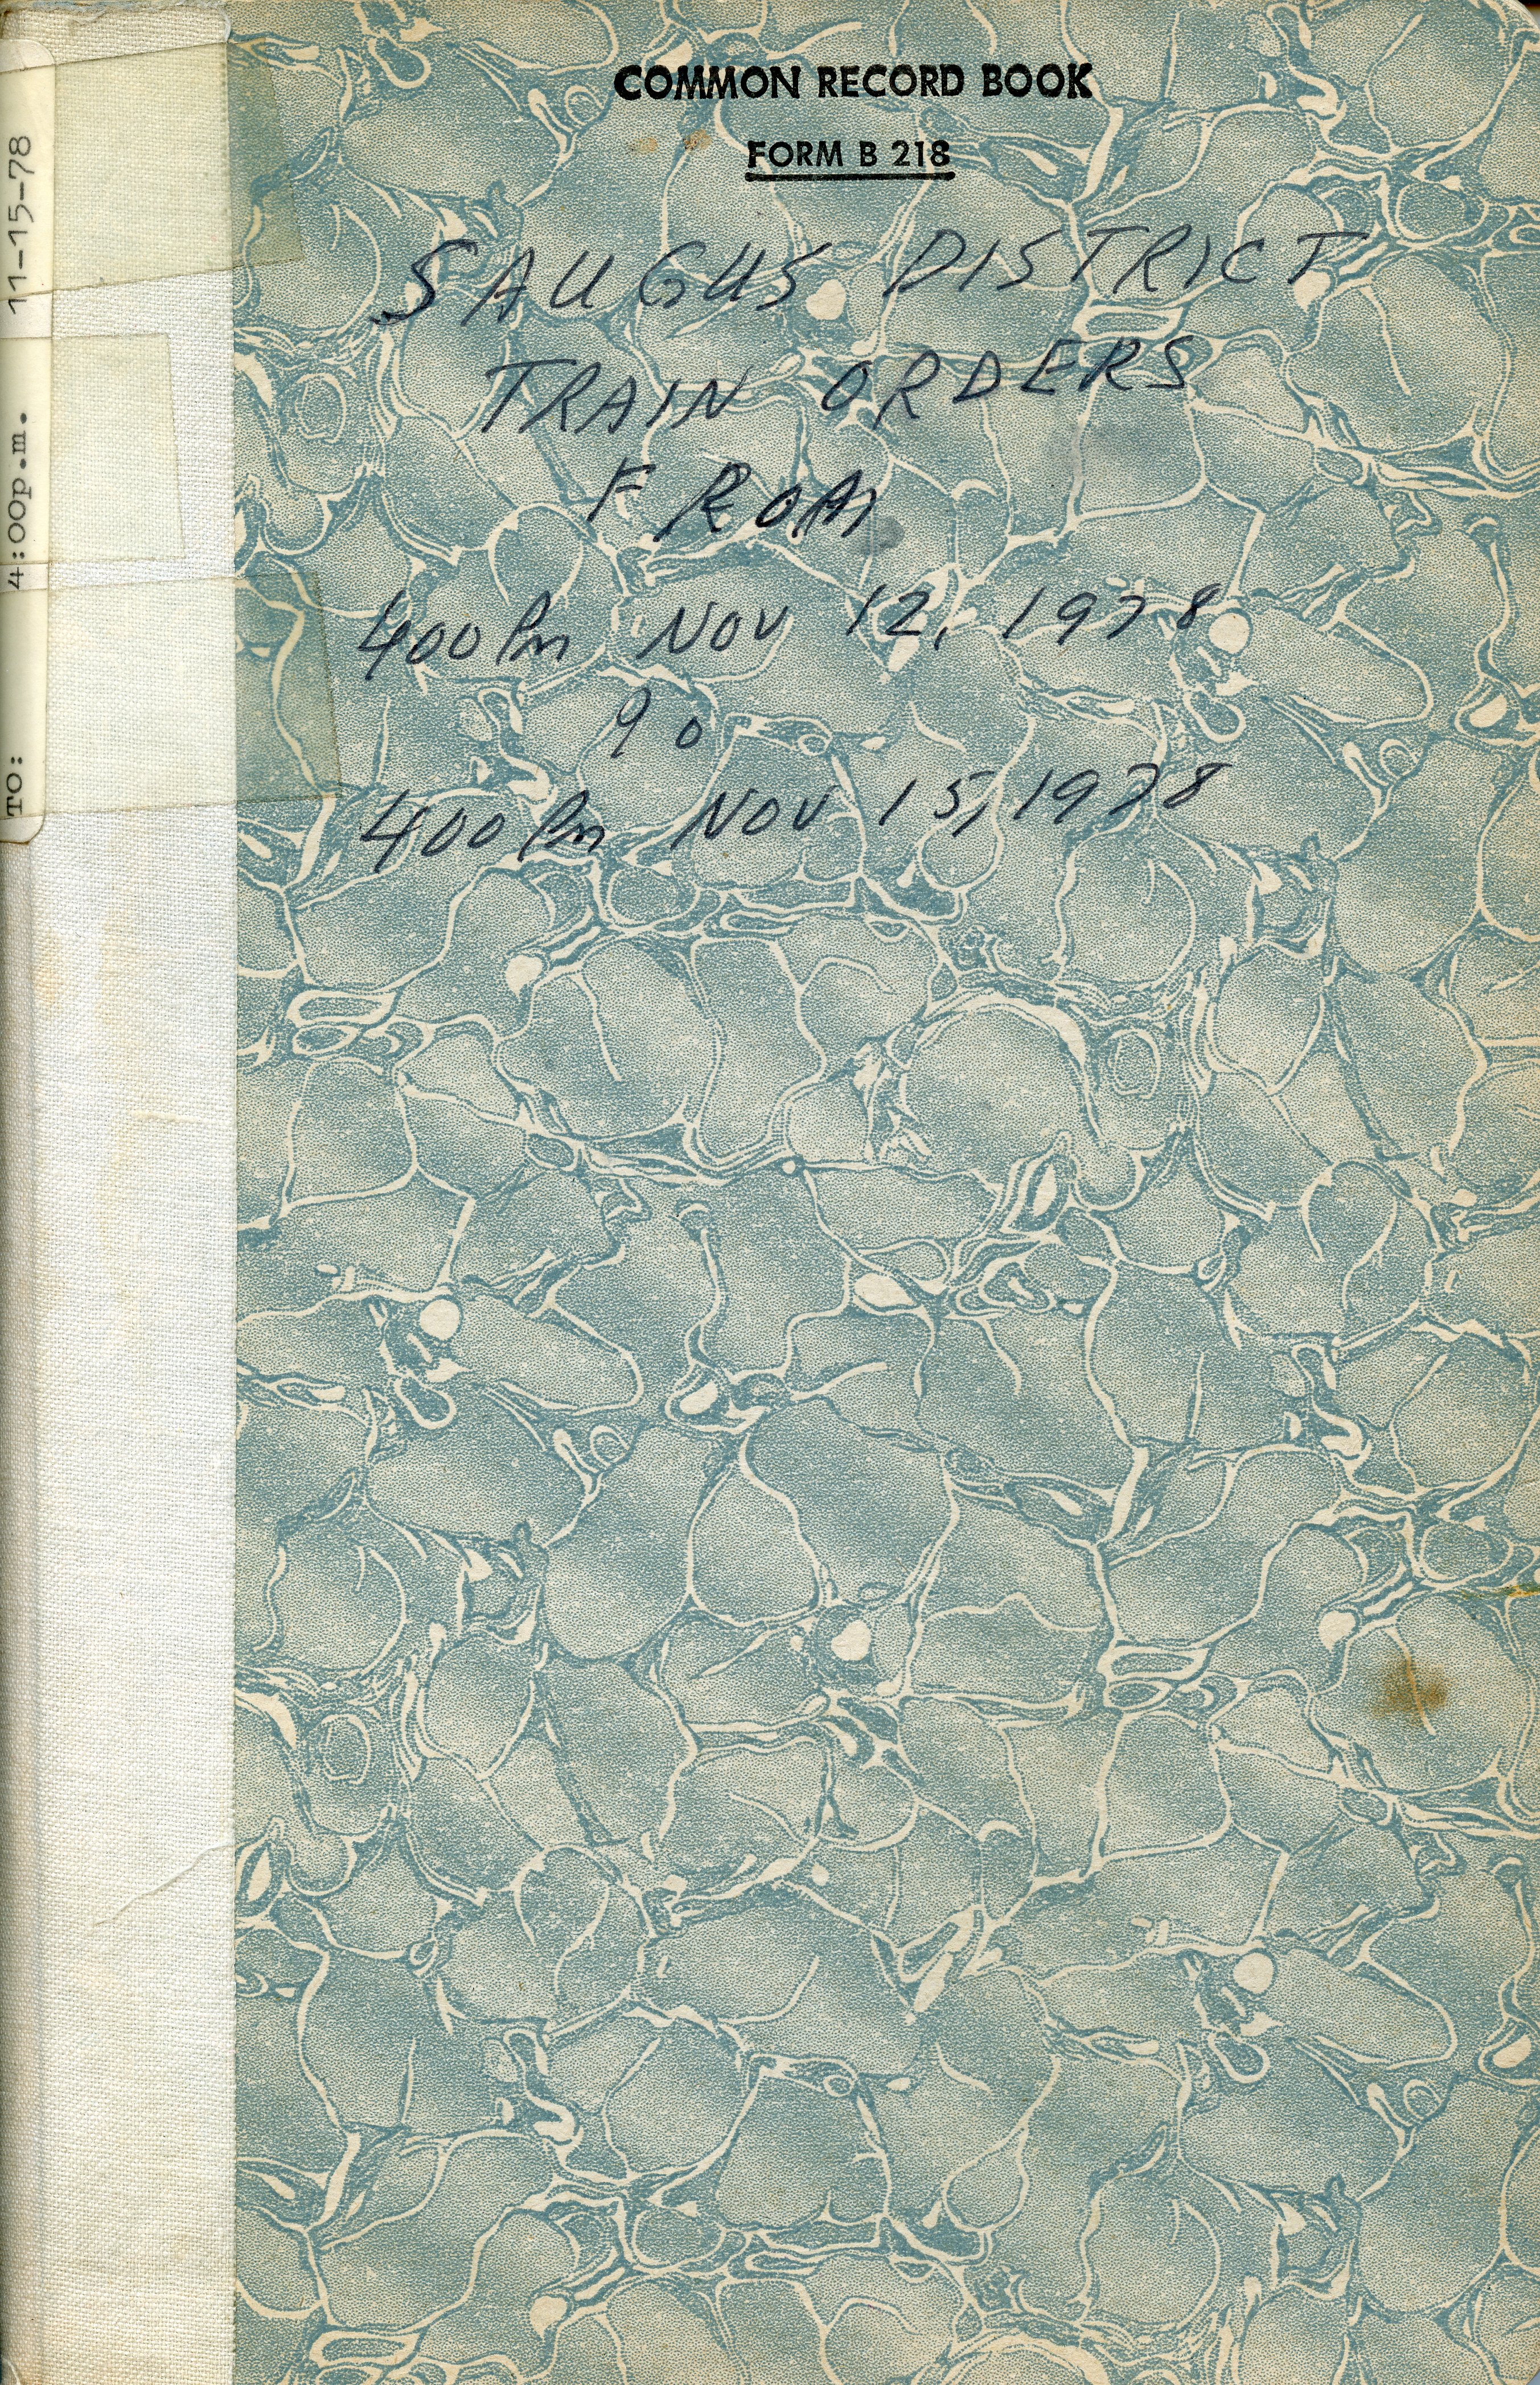 COMMON RECORD BOOK
FORM B 218
SAUGUS DISTRICT
TRAIN ORDERS
FROM
400 Pm NOV 12, 1978
TO
400 Pm NOV 15, 1978
TO: 4:00p.m. 11-15-78